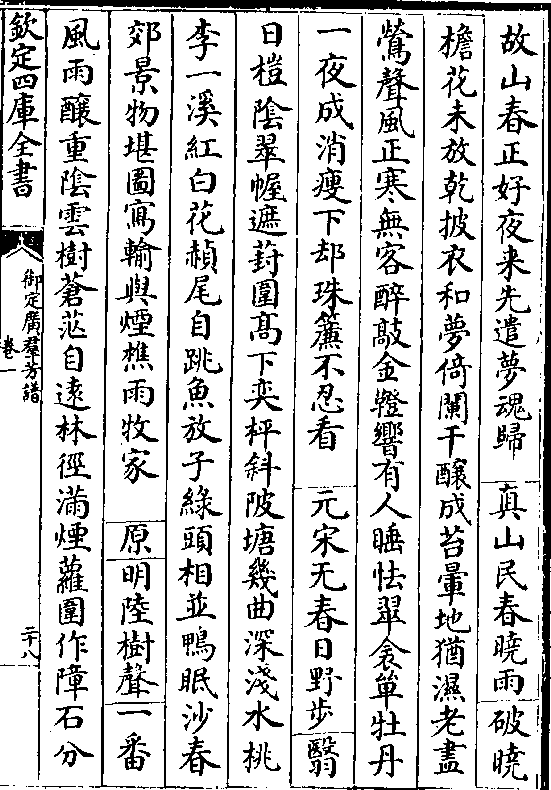 故山春正好夜来先遣夢魂歸 真山民春曉雨 破曉
檐花未放乾披衣和夢倚闌干釀成苔暈地猶濕老盡
鶯聲風正寒無客醉敲金鐙響有人睡怯翠衾單牡丹
一夜成消瘦下却珠簾不忍看 元宋无春日野步 翳
日榿陰翠幄遮葑圍髙下奕枰斜陂塘幾曲深淺水桃
李一溪紅白花赬尾自跳魚放子綠頭相並鴨眠沙春
郊景物堪圖寫輸與煙樵雨牧家 原 明陸樹聲 一番
風雨釀重陰雲樹蒼茫自逺林徑滿煙蘿圍作障石分
欽定四庫全書
御定廣羣芳譜
卷一
二十八